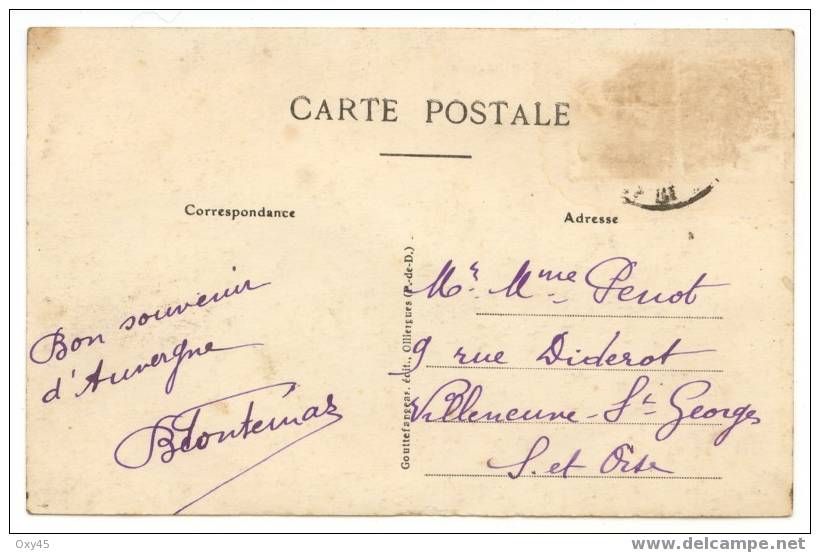 CARTE POSTALE
Correspondance
Adresse
Bon souvenir
d'Auvergne
Gouttefangeas, édit., Olliergues (P.-de-D.)
Mr. Mme Perrot
9 rue Diderot
Villeneuve-St-Georges
S. et Oise
Oxy45
delcampe.net